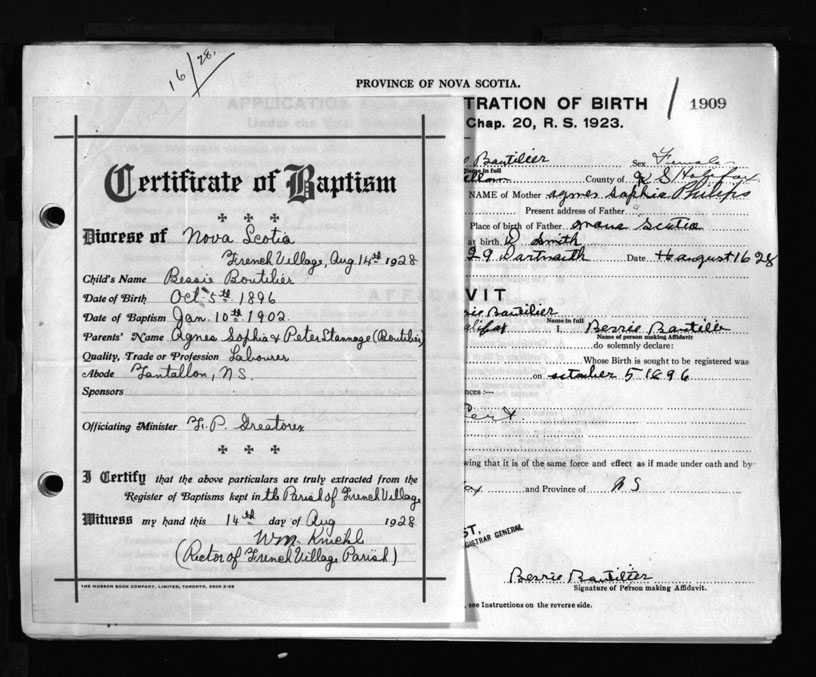 16/28.
PROVINCE OF NOVA SCOTIA.
Certificate of Baptism
Diocese of Nova Scotia
French Village, Aug 14th 1928
Child's Name Bessie Boutilier
Date of Birth Oct. 5th 1896
Date of Baptism Jan. 10th 1902.
Parents' Name Agnes Sophia & Peter Stannage (Boutilier)
Quality, Trade or Profession Labourer
Abode Tantallon, N.S.
Sponsors
Officiating Minister F. P. Greatorex
I Certify that the above particulars are truly extracted from the
Register of Baptisms kept in the Parish of French Village
Witness my hand this 14th day of Aug 1928
Wm.
(Rector of French Village Parish)
THE MUSSON BOOK COMPANY, LIMITED, TORONTO,
TRATION OF BIRTH / 1909
Chap. 20, R. S. 1923.
Bautilier Sex Female
Name in full
County of Halifax
NAME of Mother agnes Saphia Philips
Present address of Father
Place of birth of Father Scotia
at birth. Smith
Dartmouth Date 16 august 1628
VIT
Bautilier
Name in full
I, Bessie
Name of person making Affidavit
do solemnly declare:
Whose Birth is sought to be registered was
on october 5 1896
nces :—
wing that it is of the same force and effect as if made under oath and by
and Province of N S
ST,
GISTRAR GENERAL
Bessie
Signature of Person making Affidavit.
, see Instructions on the reverse side.